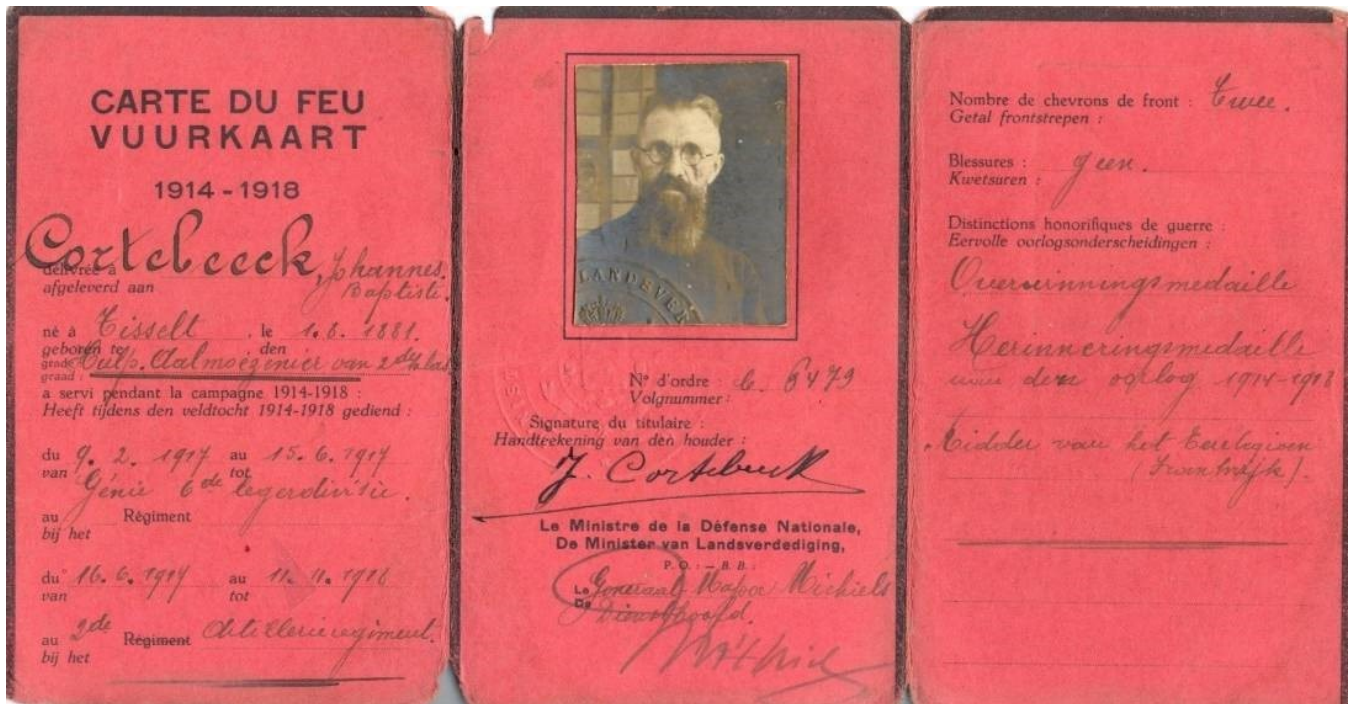 CARTE DU FEU
VUURKAART
1914 - 1918
Cortebeeck, Johannes
délivrée à
afgeleverd aan Baptiste.
né à Tisselt, le 1.8.1881.
geboren te den
grade: Hulp. Aalmoezenier van 2de klas
graad:
a servi pendant la campagne 1914-1918 :
Heeft tijdens den veldtocht 1914-1918 gediend :
du 9.2.1917 au 15.6.1917
van tot
Génie 6de legerdivisie.
au Régiment
bij het
du 16.6.1917 au 11.11.1918
van tot
au 2de Régiment Artillerieregiment.
bij het
LANDEVER
N° d'ordre : 6479
Volgnummer :
Signature du titulaire :
Handteekening van den houder :
J. Cortebeeck
Le Ministre de la Défense Nationale,
De Minister van Landsverdediging,
P. O. : — B. B. :
Le Generaal Majoor Michiels
De Diensthoofd.
Nombre de chevrons de front : Twee.
Getal frontstrepen :
Blessures : geen.
Kwetsuren :
Distinctions honorifiques de guerre :
Eervolle oorlogsonderscheidingen :
Overwinningsmedaille
Herinneringsmedaille
van den oorlog 1914-1918
Ridder van het Eerelegioen
(Frankrijk).